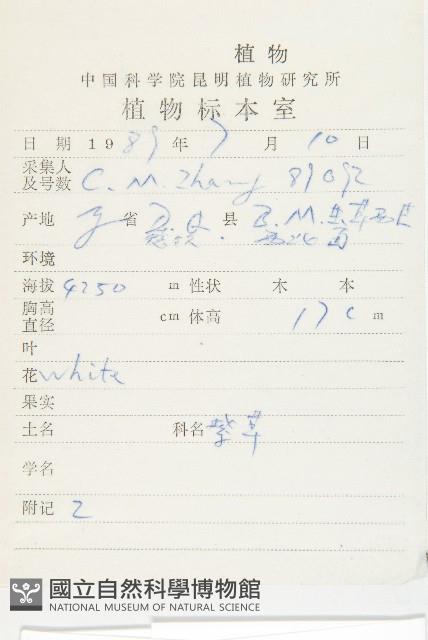 植物
中国科学院昆明植物研究所
植物标本室
日 期 1989年 7 月 10 日
采集人
及号数 C. M. Zhang 89092
产地 省 县
环境
海拔 4250 m 性状 木 本
胸高
直径 cm 体高 17 c m
叶
花 white
果实
土名 科名 紫草
学名
附记 2
國立自然科學博物館
NATIONAL MUSEUM OF NATURAL SCIENCE